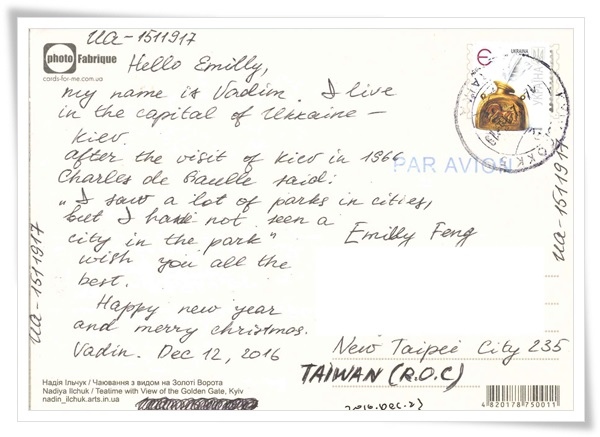 ua-1511917
photo Fabrique
cards-for-me.com.ua
Hello Emilly,
my name is Vadim. I live
in the capital of Ukraine –
Kiev.
after the visit of Kiev in 1966
Charles de Gaulle said:
„I saw a lot of parks in cities,
but I have not seen a
city in the park"
wish you all the
best.
Happy new year
and merry christmas.
Vadim. Dec 12, 2016
ua-1511917
Надія Ільчук / Чаювання з видом на Золоті Ворота
Nadiya Ilchuk / Teatime with View of the Golden Gate, Kyiv
nadin_ilchuk.arts.in.ua
Є
УКРАЇНА
PAR AVION
ua-1511917
Emilly Feng
New Taipei City 235
TAIWAN (R.O.C)
2016.Dec.27
4 820178 750011